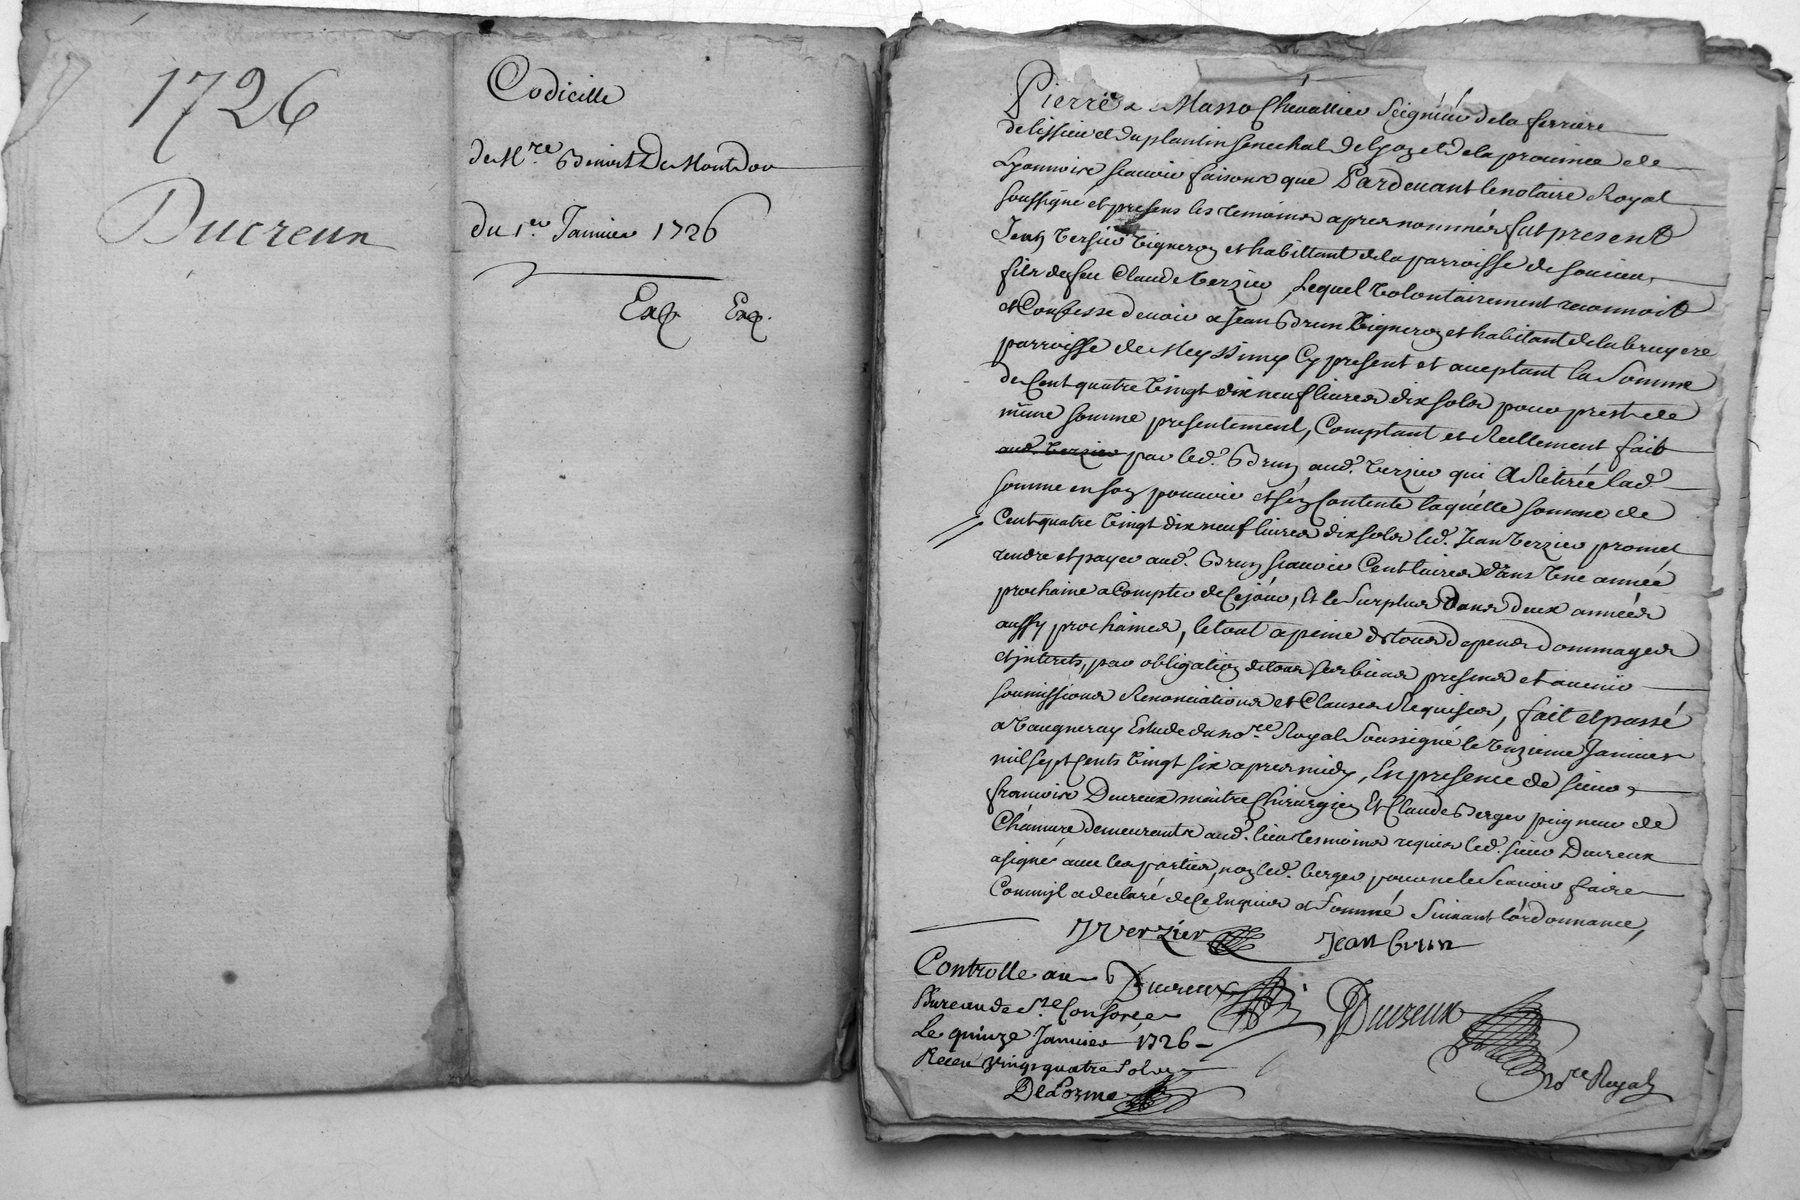 1726
Ducreux
Codicille
de Mre Benoist De Montdor
du 1er Janvier 1726
Exp. Exp.
Pierre de Masso Chevallier Seigneur de la ferriere
de lissieu et du plantin senechal de Lyon et de la province de
Lyonnois scavoir faisons que Pardevant le notaire Royal
soussigné et presens les temoins apres nommés fut present
Jean Verzier Vigneron et habittant de la parroisse de soucieu
fils de feu Claude Verzier, Lequel volontairement reconnoit
et Confesse devoir a Jean Brun Vigneron et habitant de la bruyere
parroisse de Meyssimy Cy present et acceptant la somme
de Cent quatre vingt dix neuf livres dix sols pour prest de
même somme presentement, Comptant et Reellement fait
aud. Verzier par led. Brun aud. Verzier qui a Retirée lad.
somme en son pouvoir et s'en contente laquelle somme de
Cent quatre vingt dix neuf livres dix sols led. Jean Verzier promet
rendre et payer aud. Brun scavoir Cent livres dans Une année
prochaine a Compter de Cejour, et le surplus dans deux années
aussy prochaines, le tout a peine de tous depens dommages
et interets, par obligation de tous ses biens presens et avenir
soumissions Renonciations et Clauses Requises, fait et passé
a Vaugneray Estude du nore Royal Soussigné le unzieme Janvier
mil sept cents vingt six apres midy, En presence de sieur
francois Ducreux maitre Chirurgien Et Claude Berger peigneur de
Chanvre demeurants aud. lieu tesmoins requis led. sieur Ducreux
a signé avec les parties, non led. berger pour ne le scavoir faire
Comm'il a declaré de ce Enquis et sommé suivant l'ordonnance,
J Verzier Jean brun
Ducreux Ducreux
nore Royal
Controlle au
Bureau de Ste Consorce
Le quinze Janvier 1726
Receu vingt quatre sols
De Lorme